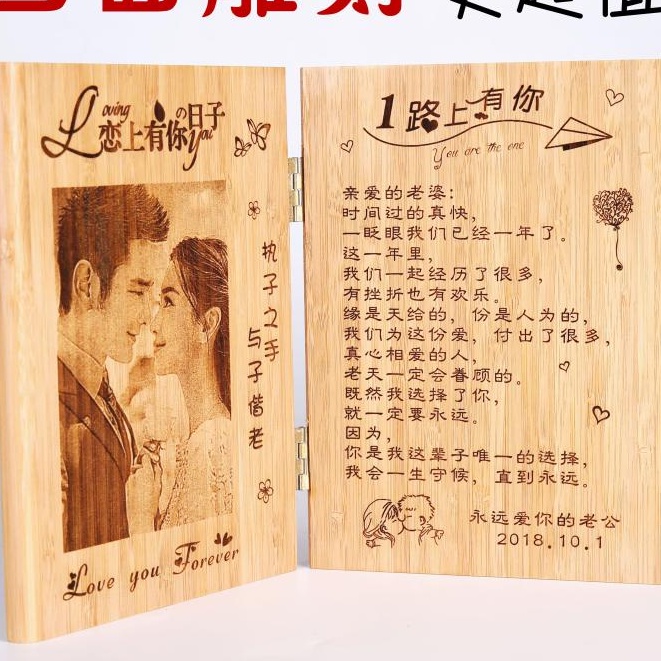 雕刻 更超值
Loving
恋上有你の日子
you
执子之手
与子偕老
Love you Forever
1路上有你
You are the one
亲爱的老婆：
时间过的真快，
一眨眼我们已经一年了。
这一年里，
我们一起经历了很多，
有挫折也有欢乐。
缘是天给的，份是人为的，
我们为这份爱，付出了很多，
真心相爱的人，
老天一定会眷顾的。
既然我选择了你，
就一定要永远。
因为，
你是我这辈子唯一的选择，
我会一生守候，直到永远。
永远爱你的老公
2018.10.1